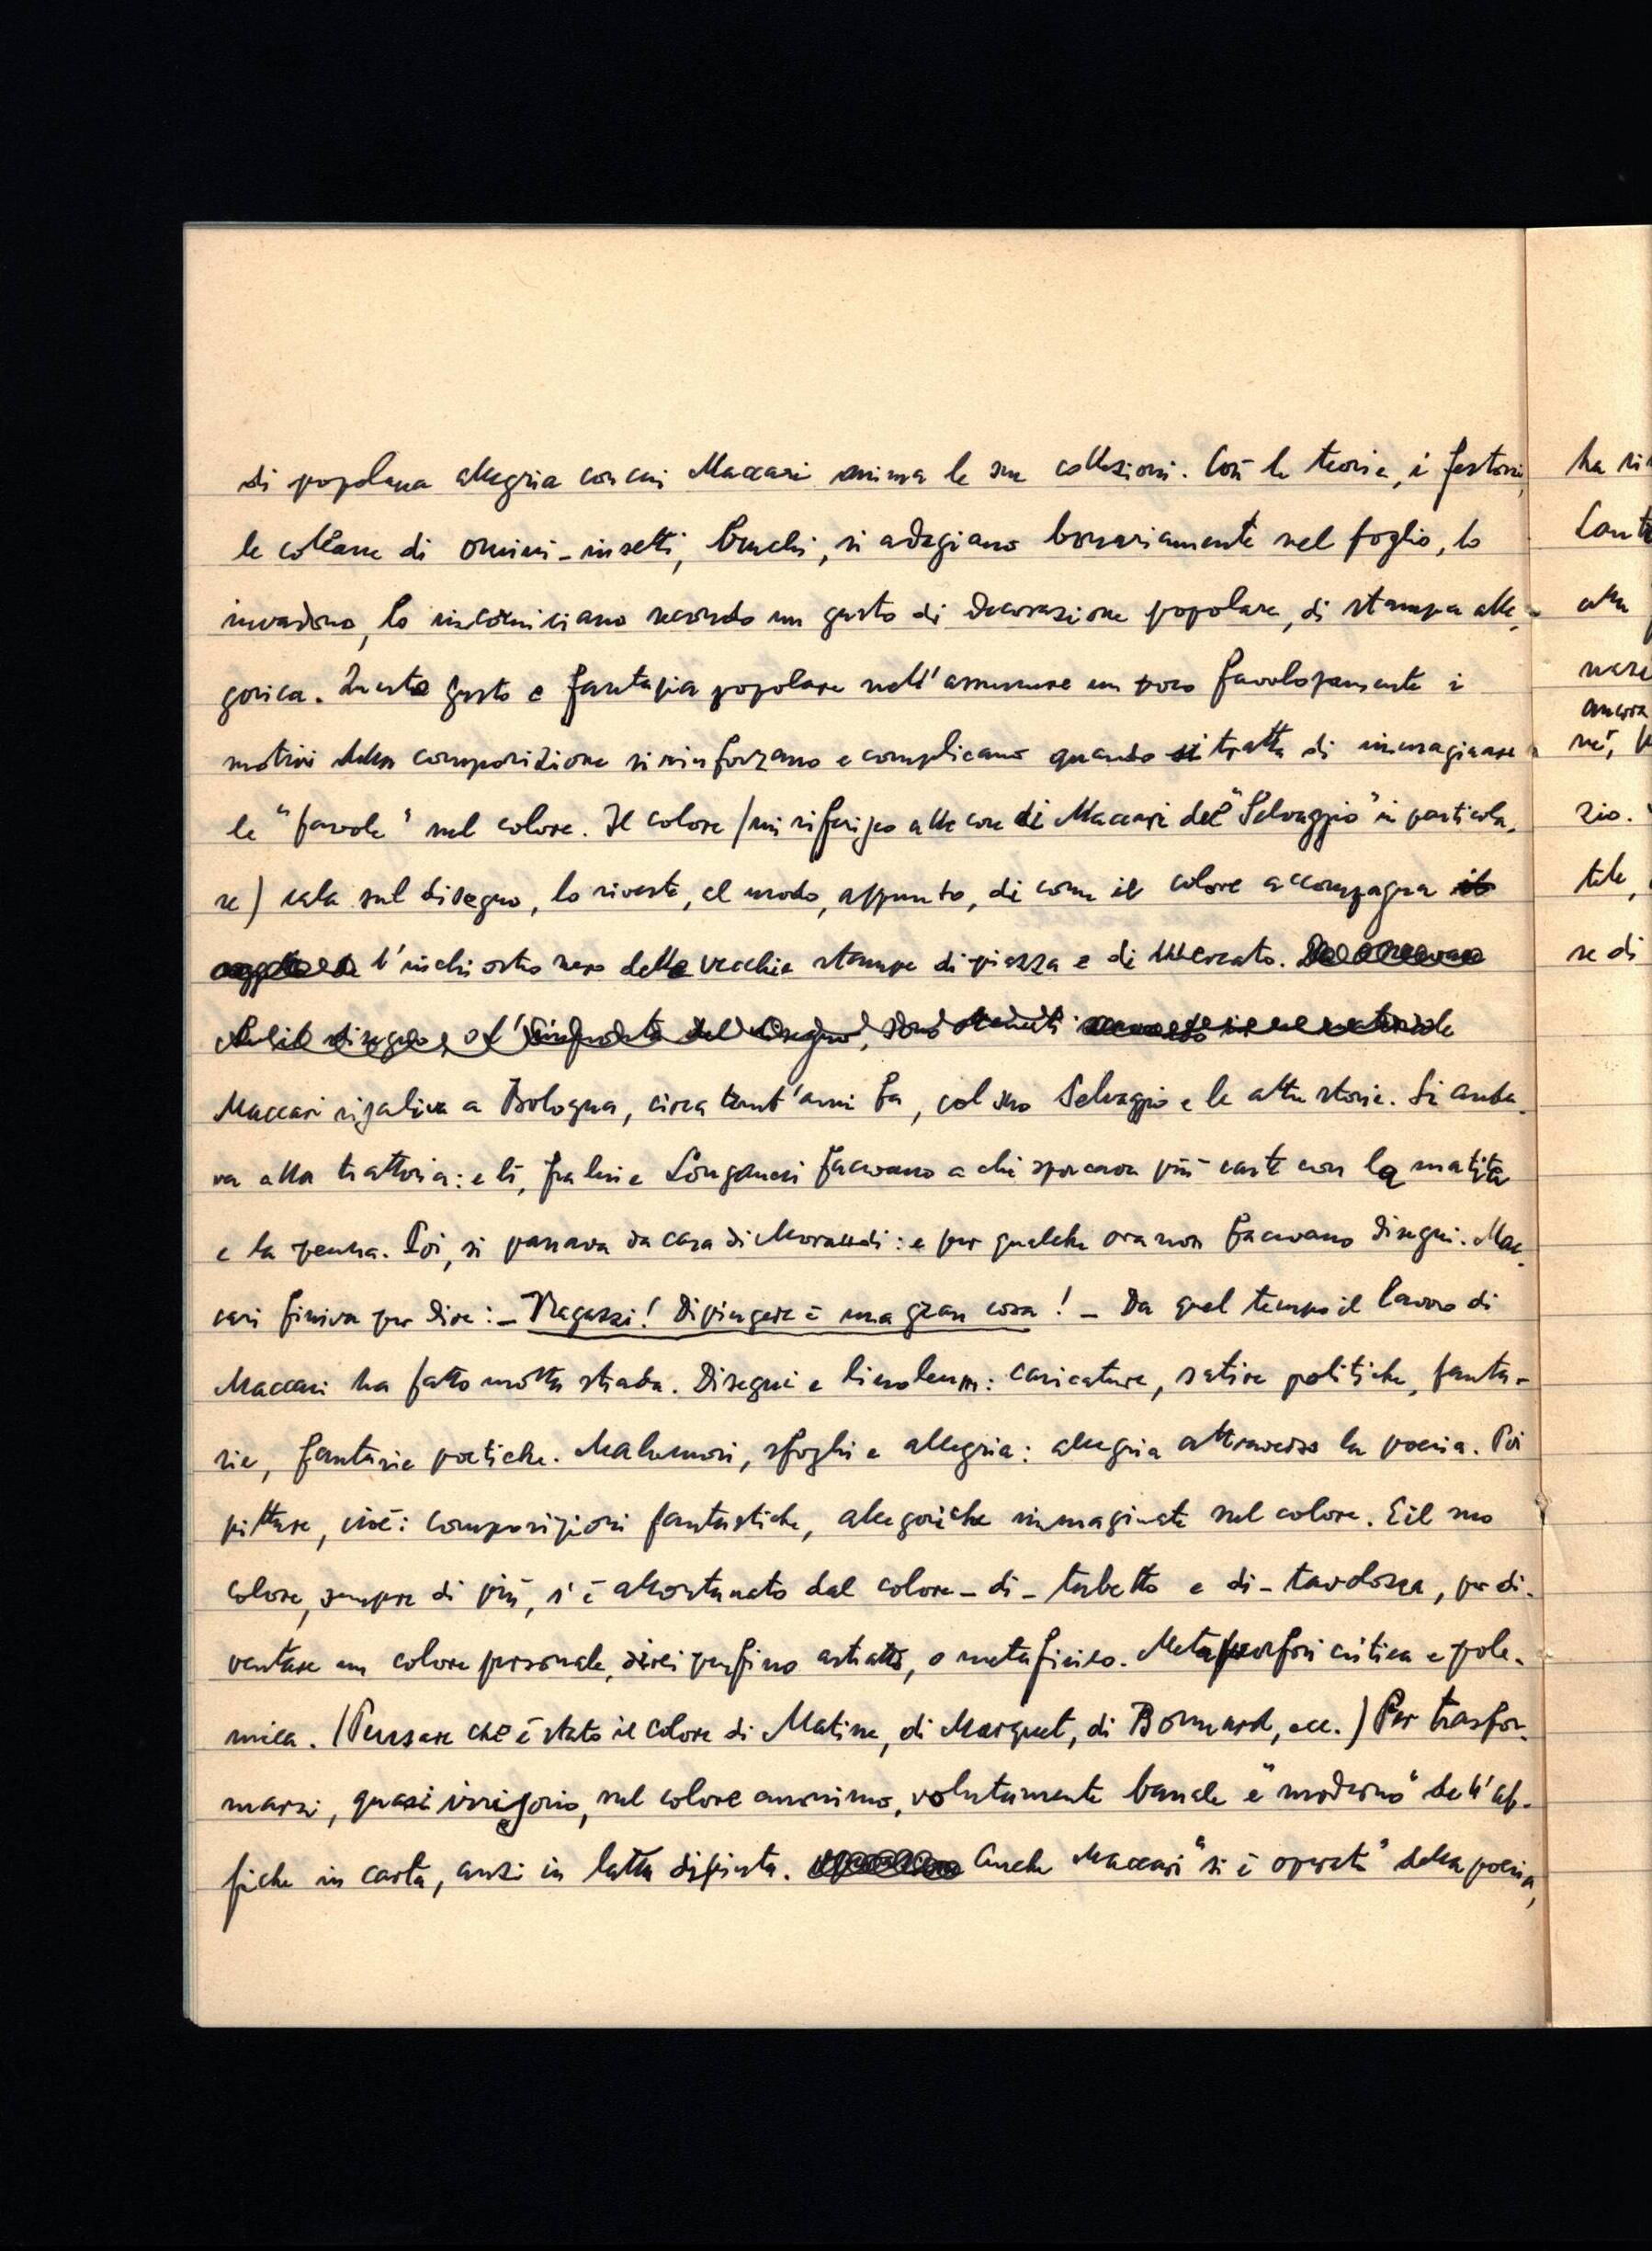 di popolana allegria con cui Maccari anima le sue collezioni. Così le teorie, i festoni,
le collane di omini-insetti, bruchi, si adagiano bonariamente nel foglio, lo
invadono, lo incorniciano secondo un gusto di decorazione popolare, di stampa alle-
gorica. Questo gusto e fantasia popolare nell'assumere un poco favolosamente i
motivi della composizione si rinforzano e complicano quando si tratta di immaginare
le "favole" nel colore. Il colore (mi riferisco alle cose di Maccari del "Selvaggio" in particola-
re) cala sul disegno, lo riveste, al modo, appunto, di come il colore accompagna il
l'inchiostro nero delle vecchie stampe di piazza e di mercato.
sul disegno, o l'impronta del disegno, sono
Maccari risaliva a Bologna, circa trent'anni fa, col suo Selvaggio e le altre storie. Si anda-
va alla trattoria: e lì, fra lui e Longanesi facevano a chi sporcava più carte con la matita
e la penna. Poi, si passava da casa di Morandi: e per qualche ora non facevano disegni. Mac-
cari finiva per dire: - Ragazzi! Dipingere è una gran cosa! - Da quel tempo il lavoro di
Maccari ha fatto molta strada. Disegni e linoleum: caricature, satire politiche, fanta-
sie, fantasie poetiche. Malumori, sfoghi e allegria: allegria attraverso la poesia. Poi
pitture, cioè: composizioni fantastiche, allegoriche immaginate nel colore. E il suo
colore, sempre di più, s'è allontanato dal colore-di-tubetto e di-tavolozza, per di-
ventare un colore personale, direi perfino astratto, o metafisico. Metamorfosi critica e pole-
mica. (Pensare che è stato il colore di Matisse, di Marquet, di Bonnard, ecc.) Per trasfor-
marsi, quasi irrisorio, nel colore anonimo, volutamente banale e "moderno" dell'af-
fiche in carta, anzi in latta dipinta. Anche Maccari "si è operato" della poesia,
ha
ancora
zio.
se di